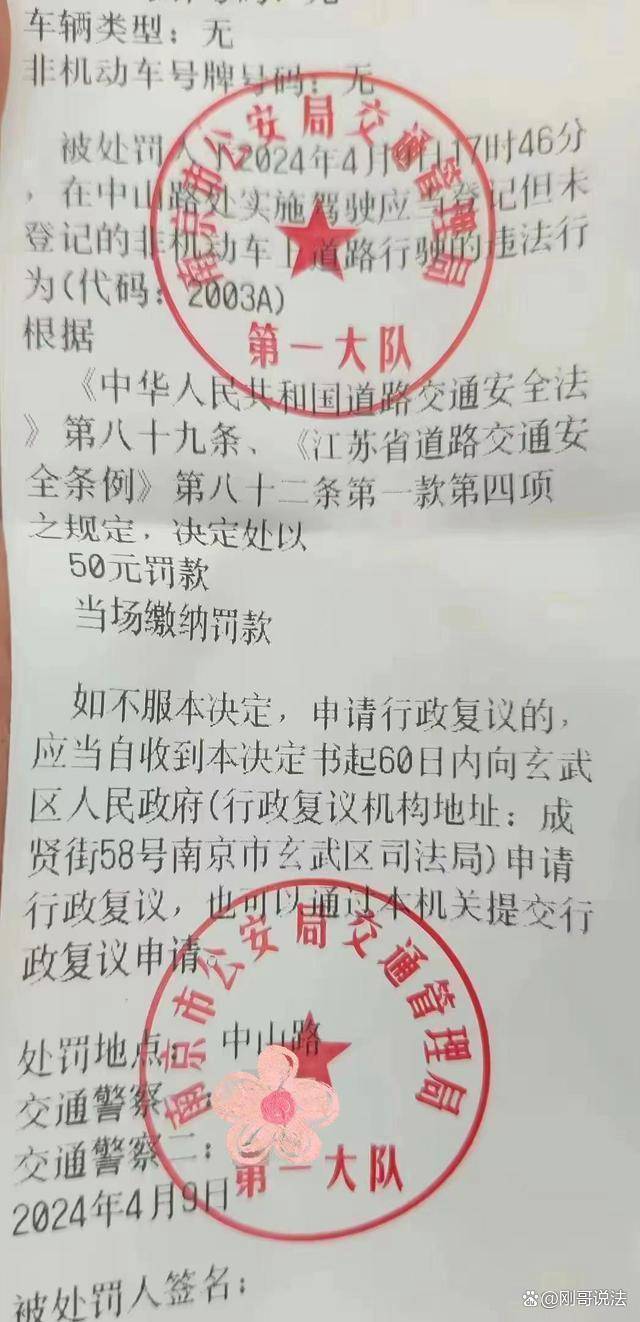 车辆类型：无
非机动车号牌号码：无
被处罚人于2024年4月9日17时46分
，在中山路处实施驾驶应当登记但未
登记的非机动车上道路行驶的违法行
为(代码：2003A)
南京市公安局交通管理局
第一大队
根据
《中华人民共和国道路交通安全法
》第八十九条、《江苏省道路交通安
全条例》第八十二条第一款第四项
之规定，决定处以
50元罚款
当场缴纳罚款
如不服本决定，申请行政复议的，
应当自收到本决定书起60日内向玄武
区人民政府(行政复议机构地址：成
贤街58号南京市玄武区司法局)申请
行政复议，也可以通过本机关提交行
政复议申请。
南京市公安局交通管理局
第一大队
处罚地点：中山路
交通警察一：
交通警察二：
2024年4月9日
被处罚人签名：
@刚哥说法